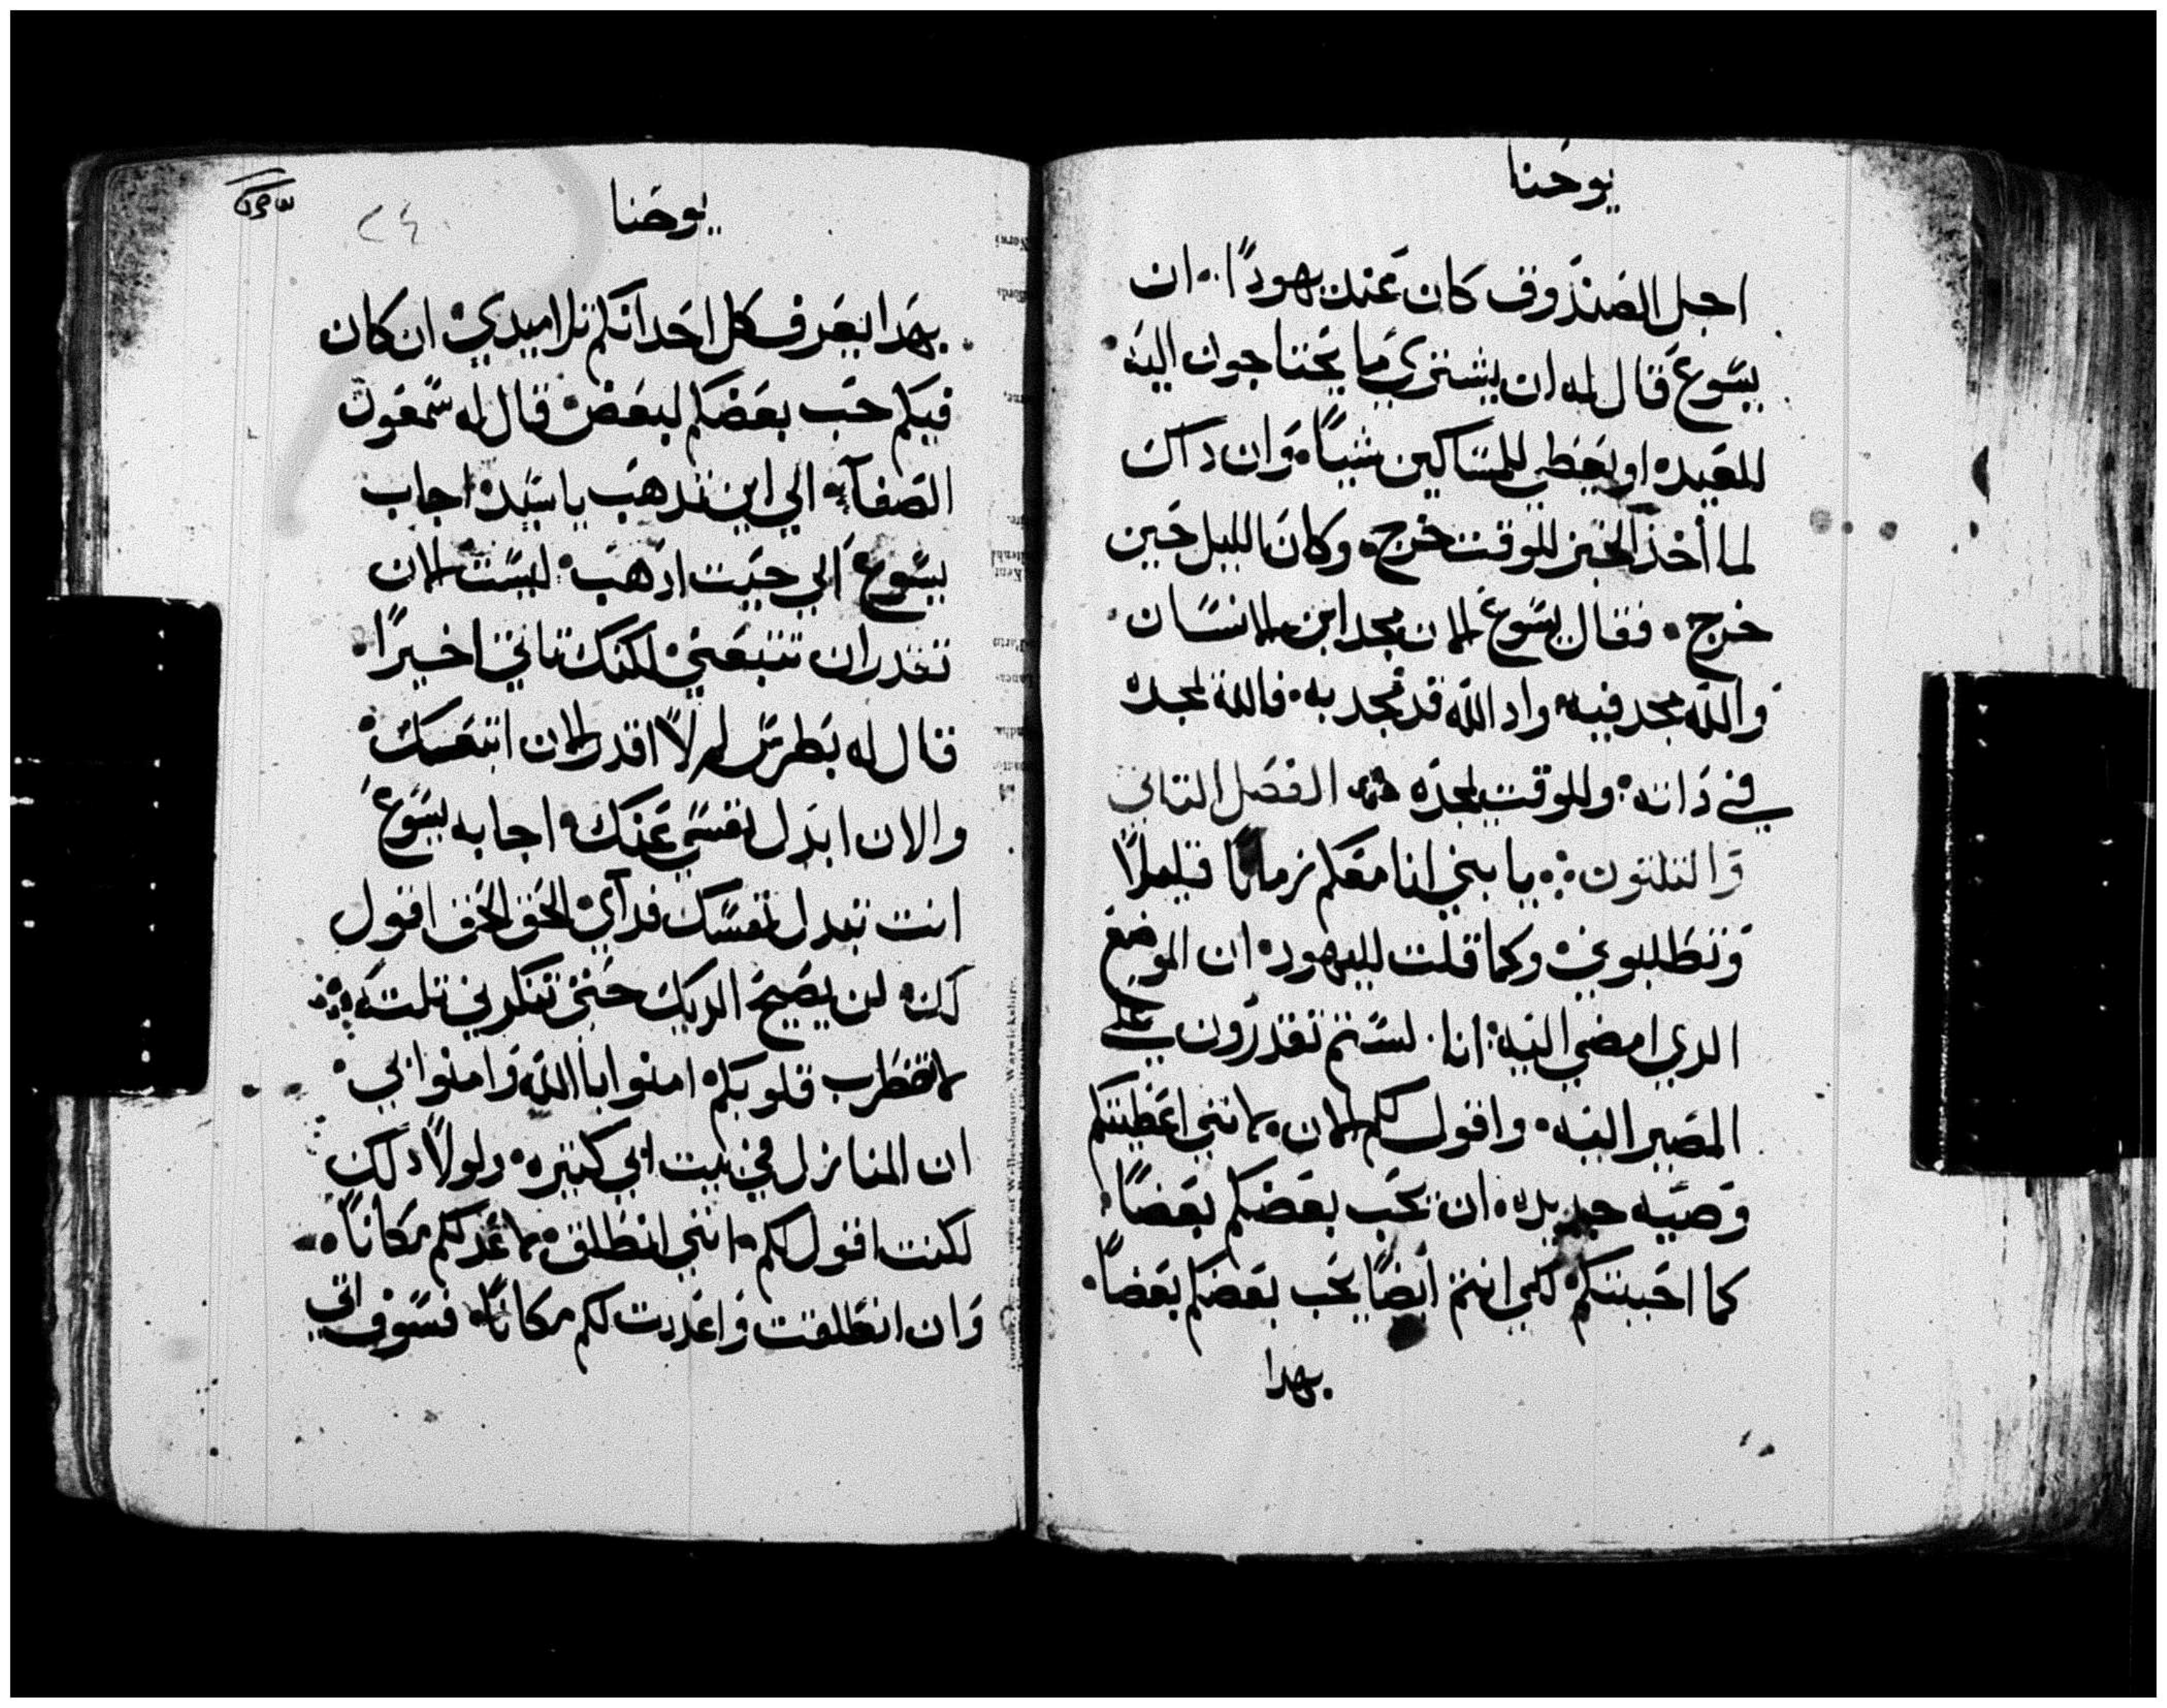 يوحنا
اجل الصندوق كان عند يهودا. ان
يسوع قال له ان يشتري ما يحتاجون اليه
للعيده او يعطي للمساكين شياً. وان داك
لما أخذ الخبز للوقت خرج. وكان الليل حين
خرج. فقال يسوع الان مجد ابن الانسان
والله مجد فيه. واد الله قد تمجد به. فالله يمجده
في داته. وللوقت يمجده الفصل التاني
والتلتون. يا بني انا معكم زماناً قليلاً
وتطلبوني. وكما قلت لليهود. ان الموضع
الدي امضي اليه. انا. لستم تقدرون على
المصير اليه. واقول لكم الان. لانني اعطيتكم
وصيه جديده. ان يحب بعضكم بعضاً.
كما احببتكم. لكي انتم ايضاً يحب بعضكم بعضاً.
بهدا
يوحنا
٢٤
بهدا يعرف كل احد انكم تلاميدي. ان كان
فيكم حب بعضكم لبعض. قال له سمعون
الصفا. الي اين تدهب يا سيد. اجاب
يسوع الي حيت ادهب. ليست الان
تقدر ان تتبعني. لكنك تاتي اخيراً.
قال له بطرس لم لا اقدر الان اتبعك.
والان ابدل نفسي عنك. اجابه يسوع
انت تبدل نفسك فداي. الحق الحق اقول
لك. لن يصيح الديك حتي تنكرني تلته
لا تضطرب قلوبكم. امنوا بالله وامنوا بي.
ان المنازل في بيت ابي كتيره. ولولا دلك
لكنت اقول لكم. انني انطلق. لاعد لكم مكاناً.
وان انطلقت واعددت لكم مكاناً. فسوف اتي